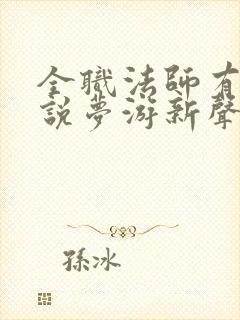 全職法師有
說夢游新聲
孫冰